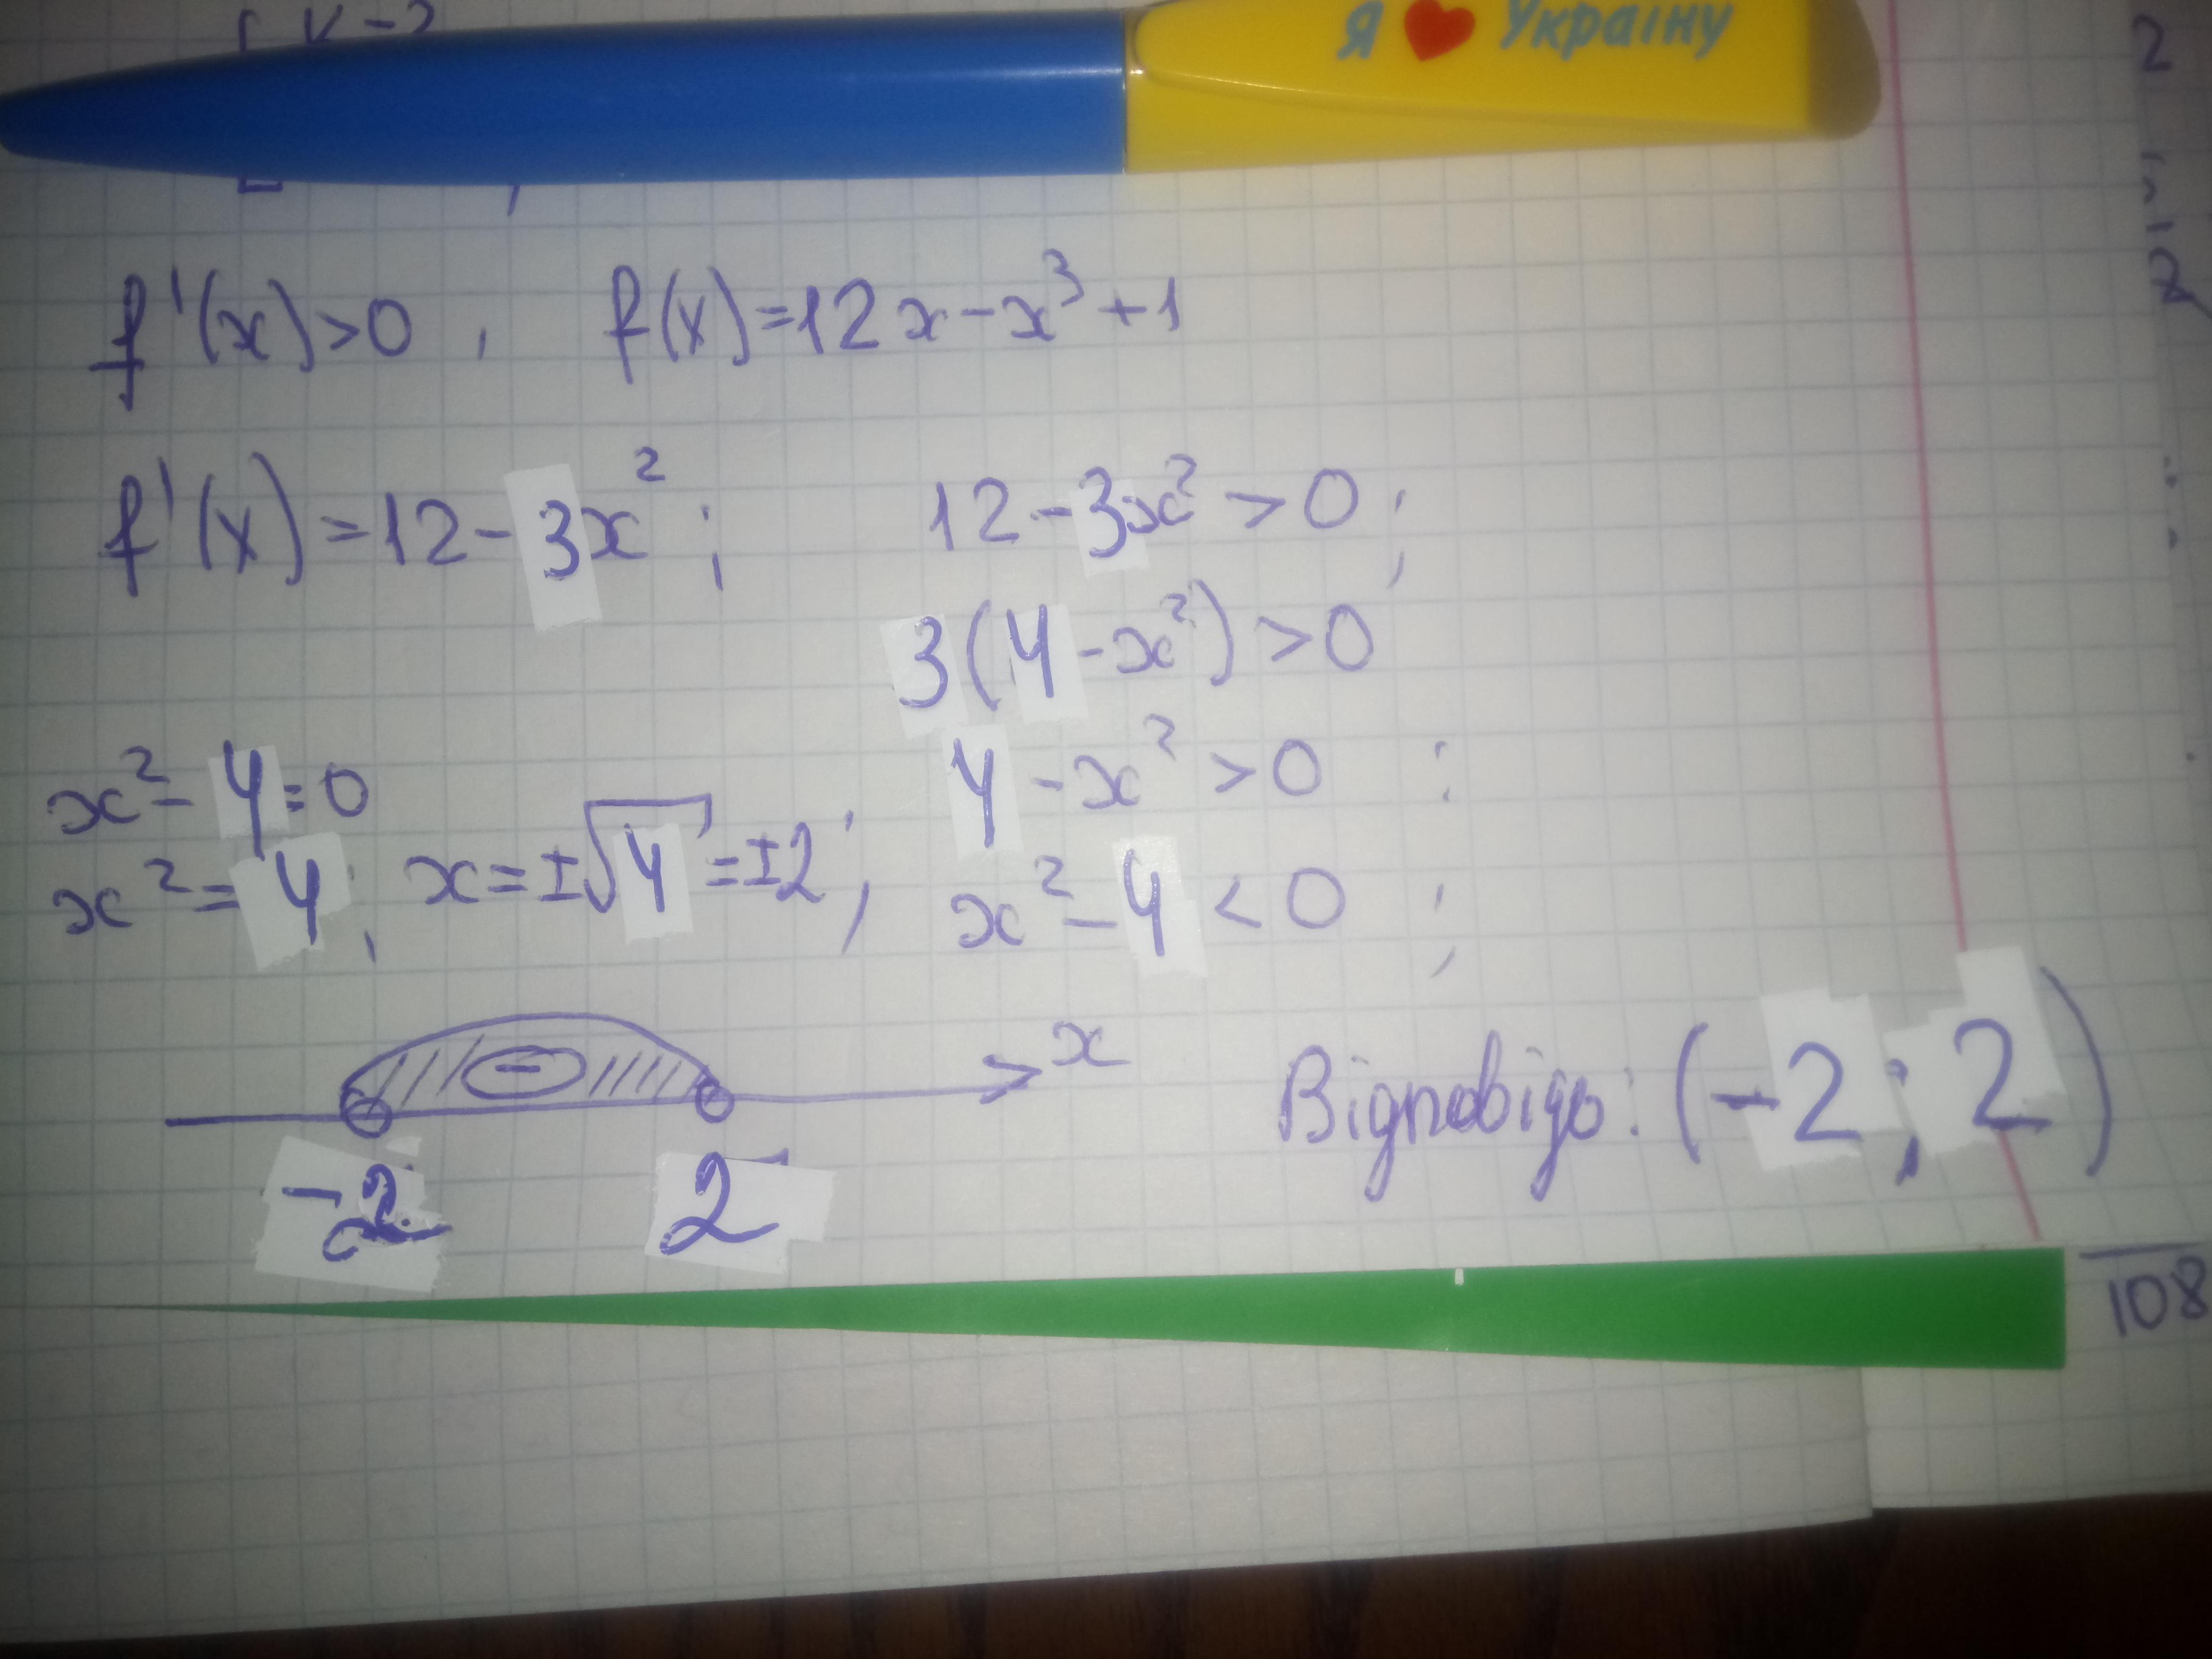 Я ❤ Україну
f'(x)>0, f(x)=12x-x³+1
f'(x)=12-3x²; 12-3x²>0;
3(4-x²)>0
4-x²>0;
x²-4=0
x²=4, x=±√4=±2; x²-4<0;
-
x
-2 2
Відповідь: (-2; 2)
108